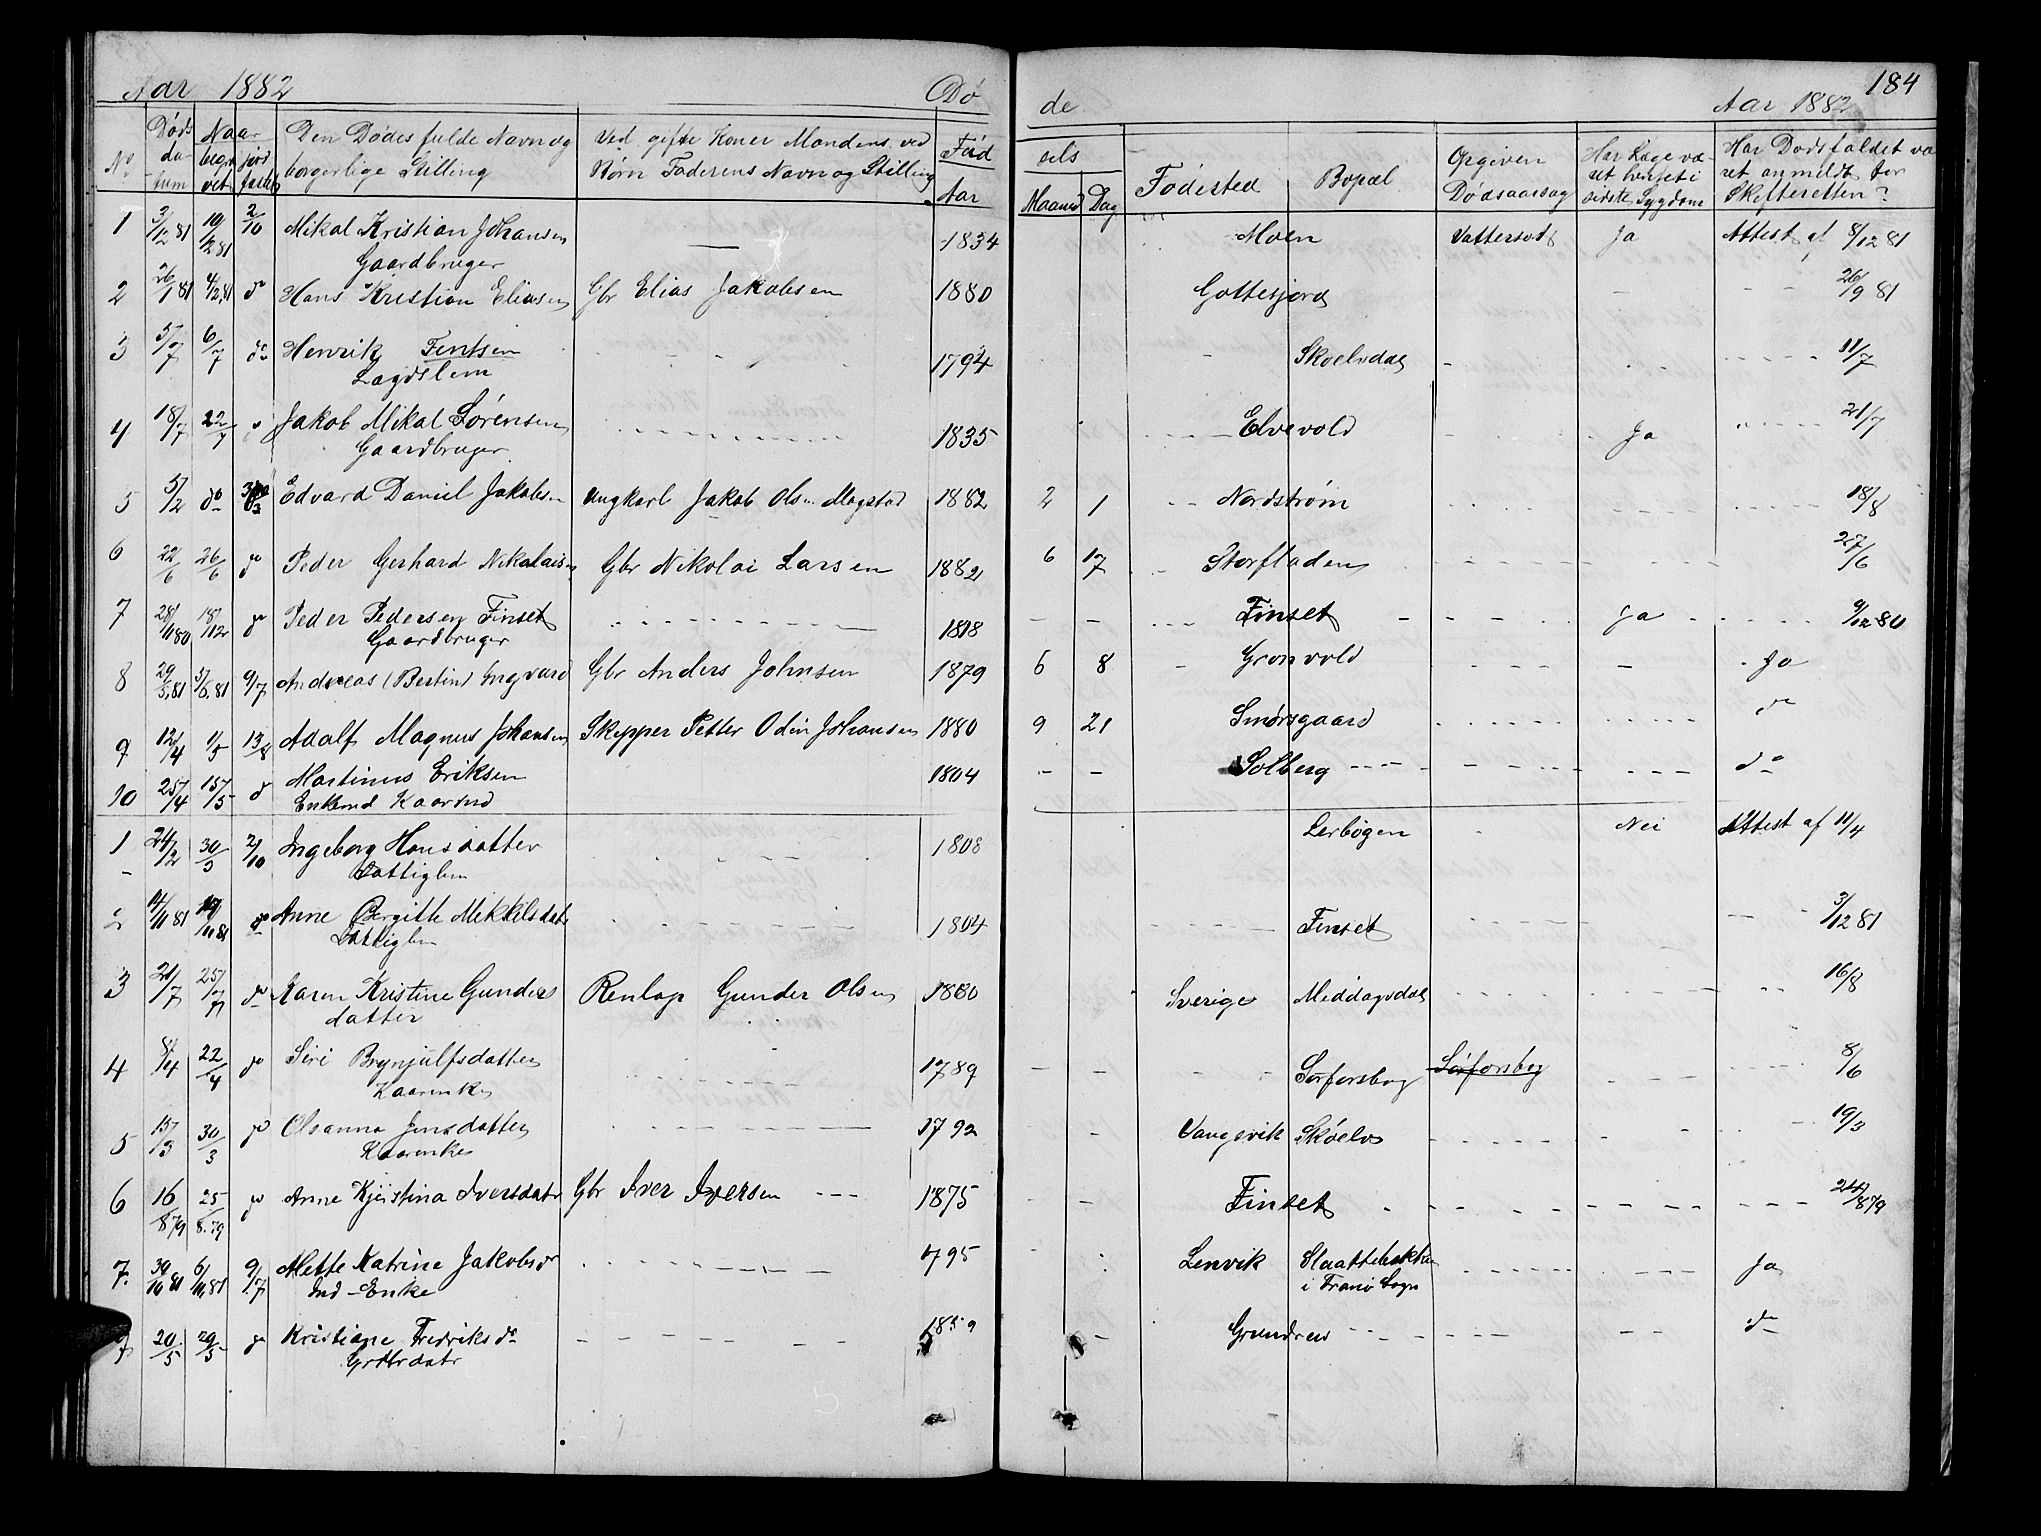 Aar 1882 Dø de Aar 1882 184
No Døds datum Naar begravet jordfæstet Den Dødes fulde Navn og borgerlige Stilling Ved gifte Koner Mandens, ved Børn Faderens Navn og Stilling Fød Aar sels Maaned Dag Fødested Bopæl Opgiven Dødsaarsag Har Læge været benyttet i sidste Sygdom Har Dødsfaldet været anmeldt for Skifteretten?
1 3/12 81 10/12 81 2/10 Mikal Kristian Johansen — 1834 Moen Vattersodt Ja Attest af 8/12 81
Gaardbruger
2 26/1 81 4/2 81 do Hans Kristian Eliasen Gbr Elias Jakobsen 1880 Gottesjord 26/9 81
3 5/7 6/7 do Henrik Fentsen 1794 Skoelvdal 11/7
Lægdslem
4 18/7 22/7 Jakob Mikal Sørensen 1835 Elvevold Ja 21/7
Gaardbruger
5 5/2 do Edvard Daniel Jakobsen ungkarl Jakob Olsen Mogstad 1882 2 1 Nordstrøm 18/8
6 22/6 26/6 do Peder Gerhard Nikolaisen Gbr Nikolai Larsen 1882 6 17 Storfladen 27/6
7 28/11 80 18/12 do Peder Pedersen Finset 1818 - - Finset Ja 9/12 80
Gaardbruger
8 29/5 81 5/6 81 9/7 Andreas (Bertin) Ingvard Gbr Anders Johnsen 1879 6 8 Gronvold - Ja
9 12/4 1/5 13/8 Adolf Magnus Johansen Skipper Petter Odin Johansen 1880 9 21 Smørsgaard do
10 25/4 15/5 do Martinus Eriksen 1804 - - Solberg do
Enkemd Kaarmd
1 24/2 30/3 2/10 Ingeborg Hansdatter 1808 Lerbøgen Nei Attest af 11/4
Fattiglem
2 14/11 81 19/11 81 do Anne Bergitte Mikkelsdatr 1804 Finset 3/12 81
Fattiglem
3 21/7 25/7 do Karen Kristine Gunders Renlap Gunder Olsen 1880 Sverige Middagsdal 16/8
datter
4 8/4 22/4 do Siri Brynjulfsdatter 1789 - - Sørforsbog Sørforsbog 8/6
Kaarenke
5 15/3 30/3 do Olsanna Jensdatter 1792 - Vangsvik Skøelv 19/3
Kaarenke
6 16/8 79 25/8 79 do Anne Kjerstina Iversdatr Gbr Iver Iversen 1875 - - Finset 24/8 79
7 30/10 81 6/11 81 9/7 Mette Katrine Jakobsdr 1795 Lenvik Slaattebakken Ja
Ind-Enke i Tranø Sogn
20/5 29/5 do Kristiane Fredriksdr 1859 - Grundren do
Gbrdatr